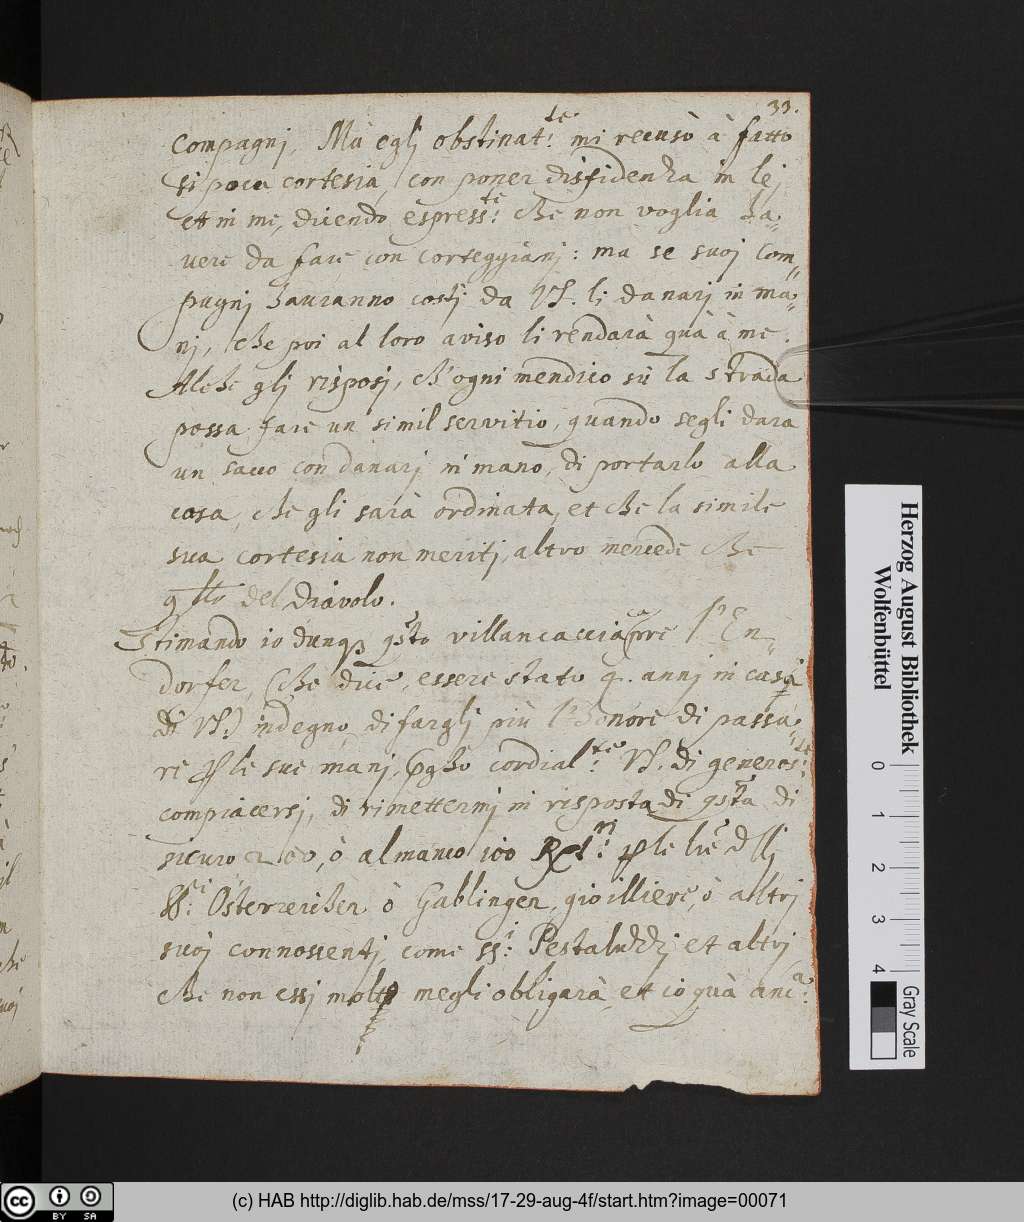 33.
compagnj, Mà eglj obstinat:te mi recusò à fatto
si poca cortesia, con poner disfidenza in lej
et in me, dicendo espress:te che non voglia ha„
vere da fare con corteggianj: ma se suoj com„
pagnj hauranno costj da VS. lj danarj in ma„
nj, che poi al loro aviso li rendarà quà à me.
Alche glj risposj, ch'ogni mendico sù la strada
possa fare un simil servitio, quando segli dara
un sacco con danarj in mano, di portarlo alla
casa, che gli sarà ordinata, et che la simile
sua cortesia non meritj, altro mercede che
del diavolo.
Stimando io dunq qsto villancaccia En„
dorfer, (che dice, essere stato 4. annj in casa
di VS.) indegno, di farglj più l'honore di passa„
re le sue manj, pgho cordial:te VS. di generos:te
compiacersj, di rimettermj in risposta di qsta di
sicuro 200, ò almanco 100 le dllj
SS:ri Österreicher ò Gablingen, gioilliere, ò altrj
suoj connossentj, come SS:ri Pestaluzzj et altrj
che non essj molto megli obligarà, et io quà anc:a
Herzog August Bibliothek
Wolfenbüttel
0 1 2 3 4
Gray Scale
cc BY SA
(c) HAB http://diglib.hab.de/mss/17-29-aug-4f/start.htm?image=00071